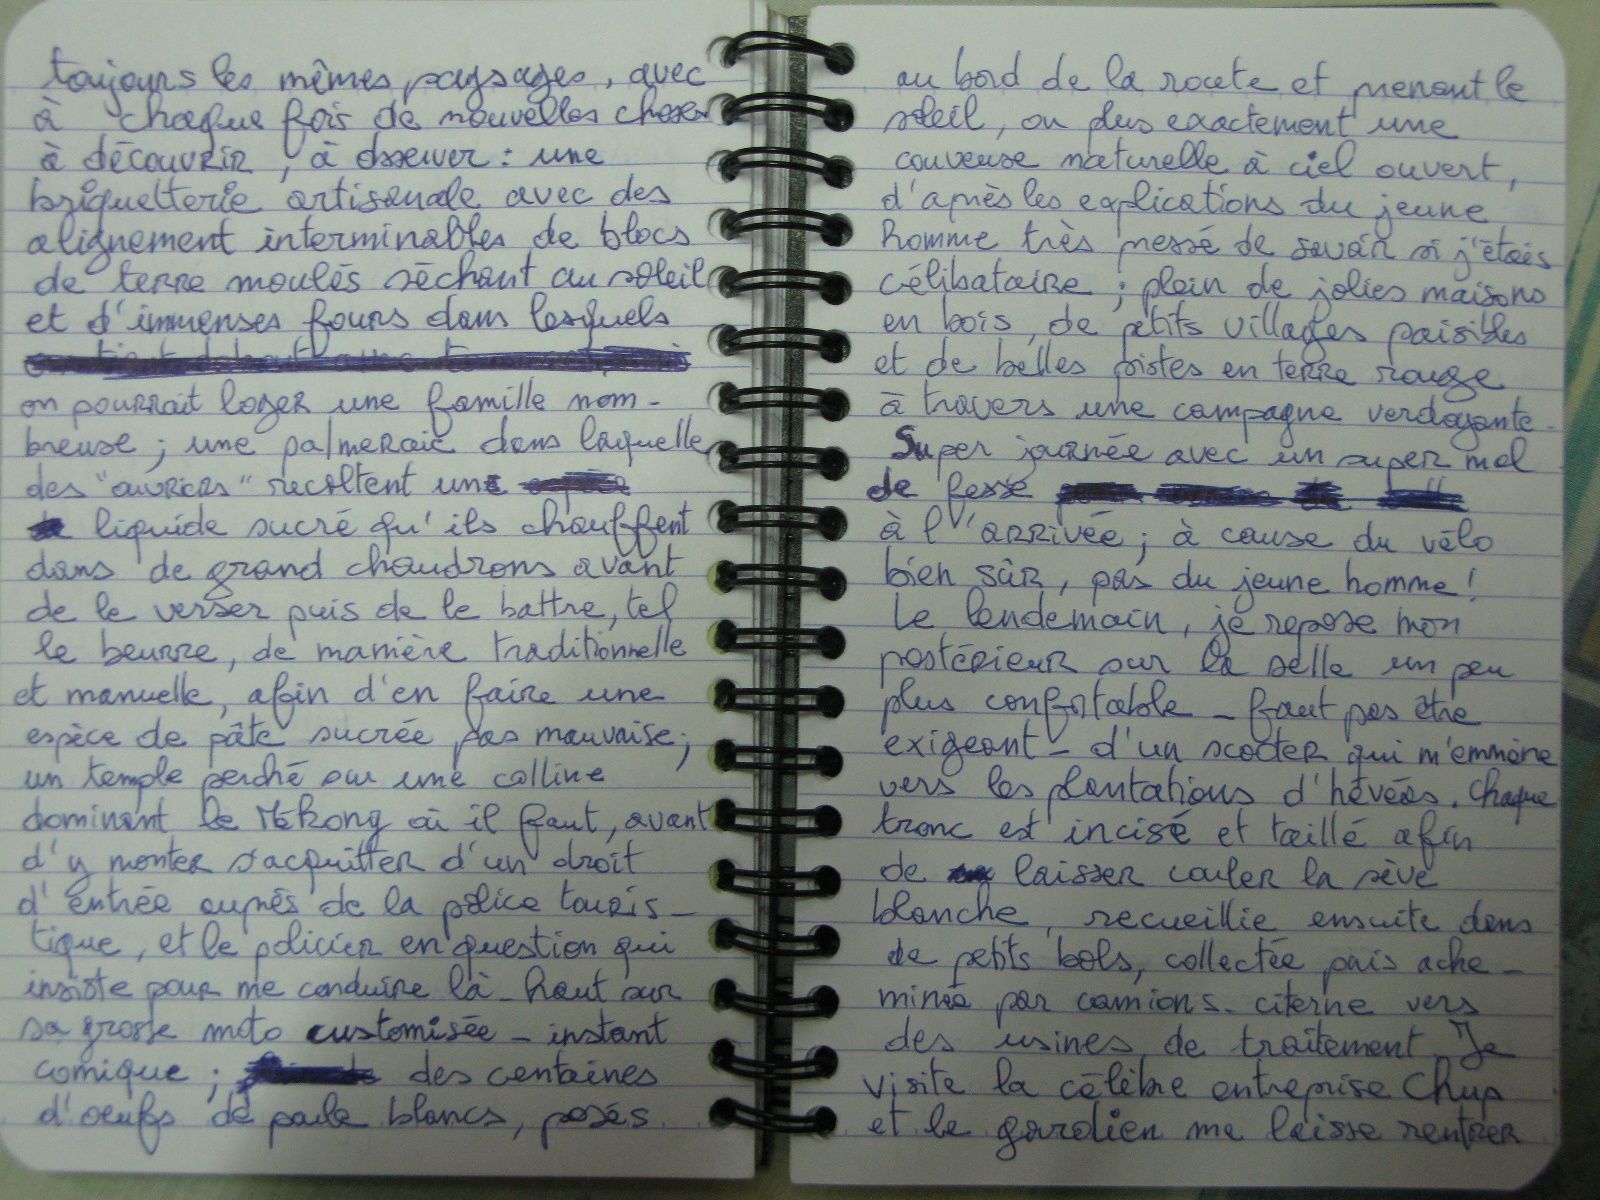 toujours les mêmes paysages, avec
à chaque fois de nouvelles choses
à découvrir, à observer : une
briquetterie artisanale avec des
alignement interminables de blocs
de terre moulés séchant au soleil
et d'immenses fours dans lesquels
on pourrait loger une famille nom-
breuse ; une palmeraie dans laquelle
des "ouvriers" recoltent une
liquide sucré qu'ils chauffent
dans de grand chaudrons avant
de le verser puis de le battre, tel
le beurre, de manière traditionnelle
et manuelle, afin d'en faire une
espèce de pâte sucrée pas mauvaise ;
un temple perché sur une colline
dominant le Mékong où il faut, avant
d'y monter s'acquitter d'un droit
d'entrée auprès de la police touris-
tique, et le policier en question qui
insiste pour me conduire là-haut sur
sa grosse moto customisée - instant
comique ; des centaines
d'oeufs de poule blancs, posés
au bord de la route et prenant le
soleil, ou plus exactement une
couveuse naturelle à ciel ouvert,
d'après les explications du jeune
homme très pressé de savoir si j'étais
célibataire ; plein de jolies maisons
en bois, de petits villages paisibles
et de belles pistes en terre rouge
à travers une campagne verdoyante.
Super journée avec un super mal
de fesse
à l'arrivée ; à cause du vélo
bien sûr, pas du jeune homme !
Le lendemain, je repose mon
postérieur sur la selle un peu
plus confortable - faut pas être
exigeant - d'un scooter qui m'emmène
vers les plantations d'hévéas. Chaque
tronc est incisé et taillé afin
de laisser couler la sève
blanche, recueillie ensuite dans
de petits bols, collectée puis ache-
minée par camions-citerne vers
des usines de traitement. Je
visite la célèbre entreprise Chup
et le gardien me laisse rentrer